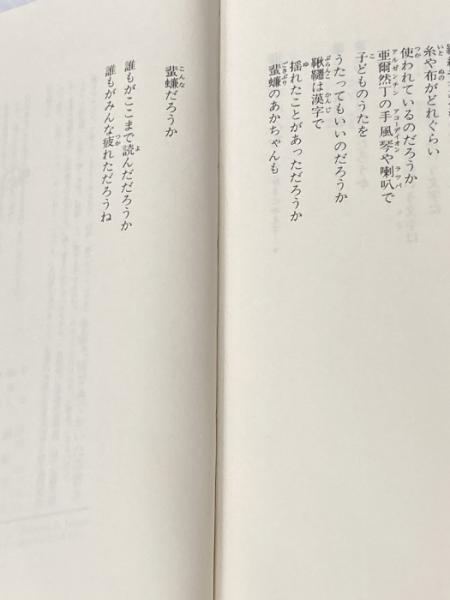 糸や布がどれぐらい
使われているのだろうか
亜爾然丁の手風琴や喇叭で
子どものうたを
うたってもいいのだろうか
鞦韆は漢字で
揺れたことがあっただろうか
蜚蠊のあかちゃんも
蜚蠊だろうか
誰もがここまで読んだだろうか
誰もがみんな疲れただろうね